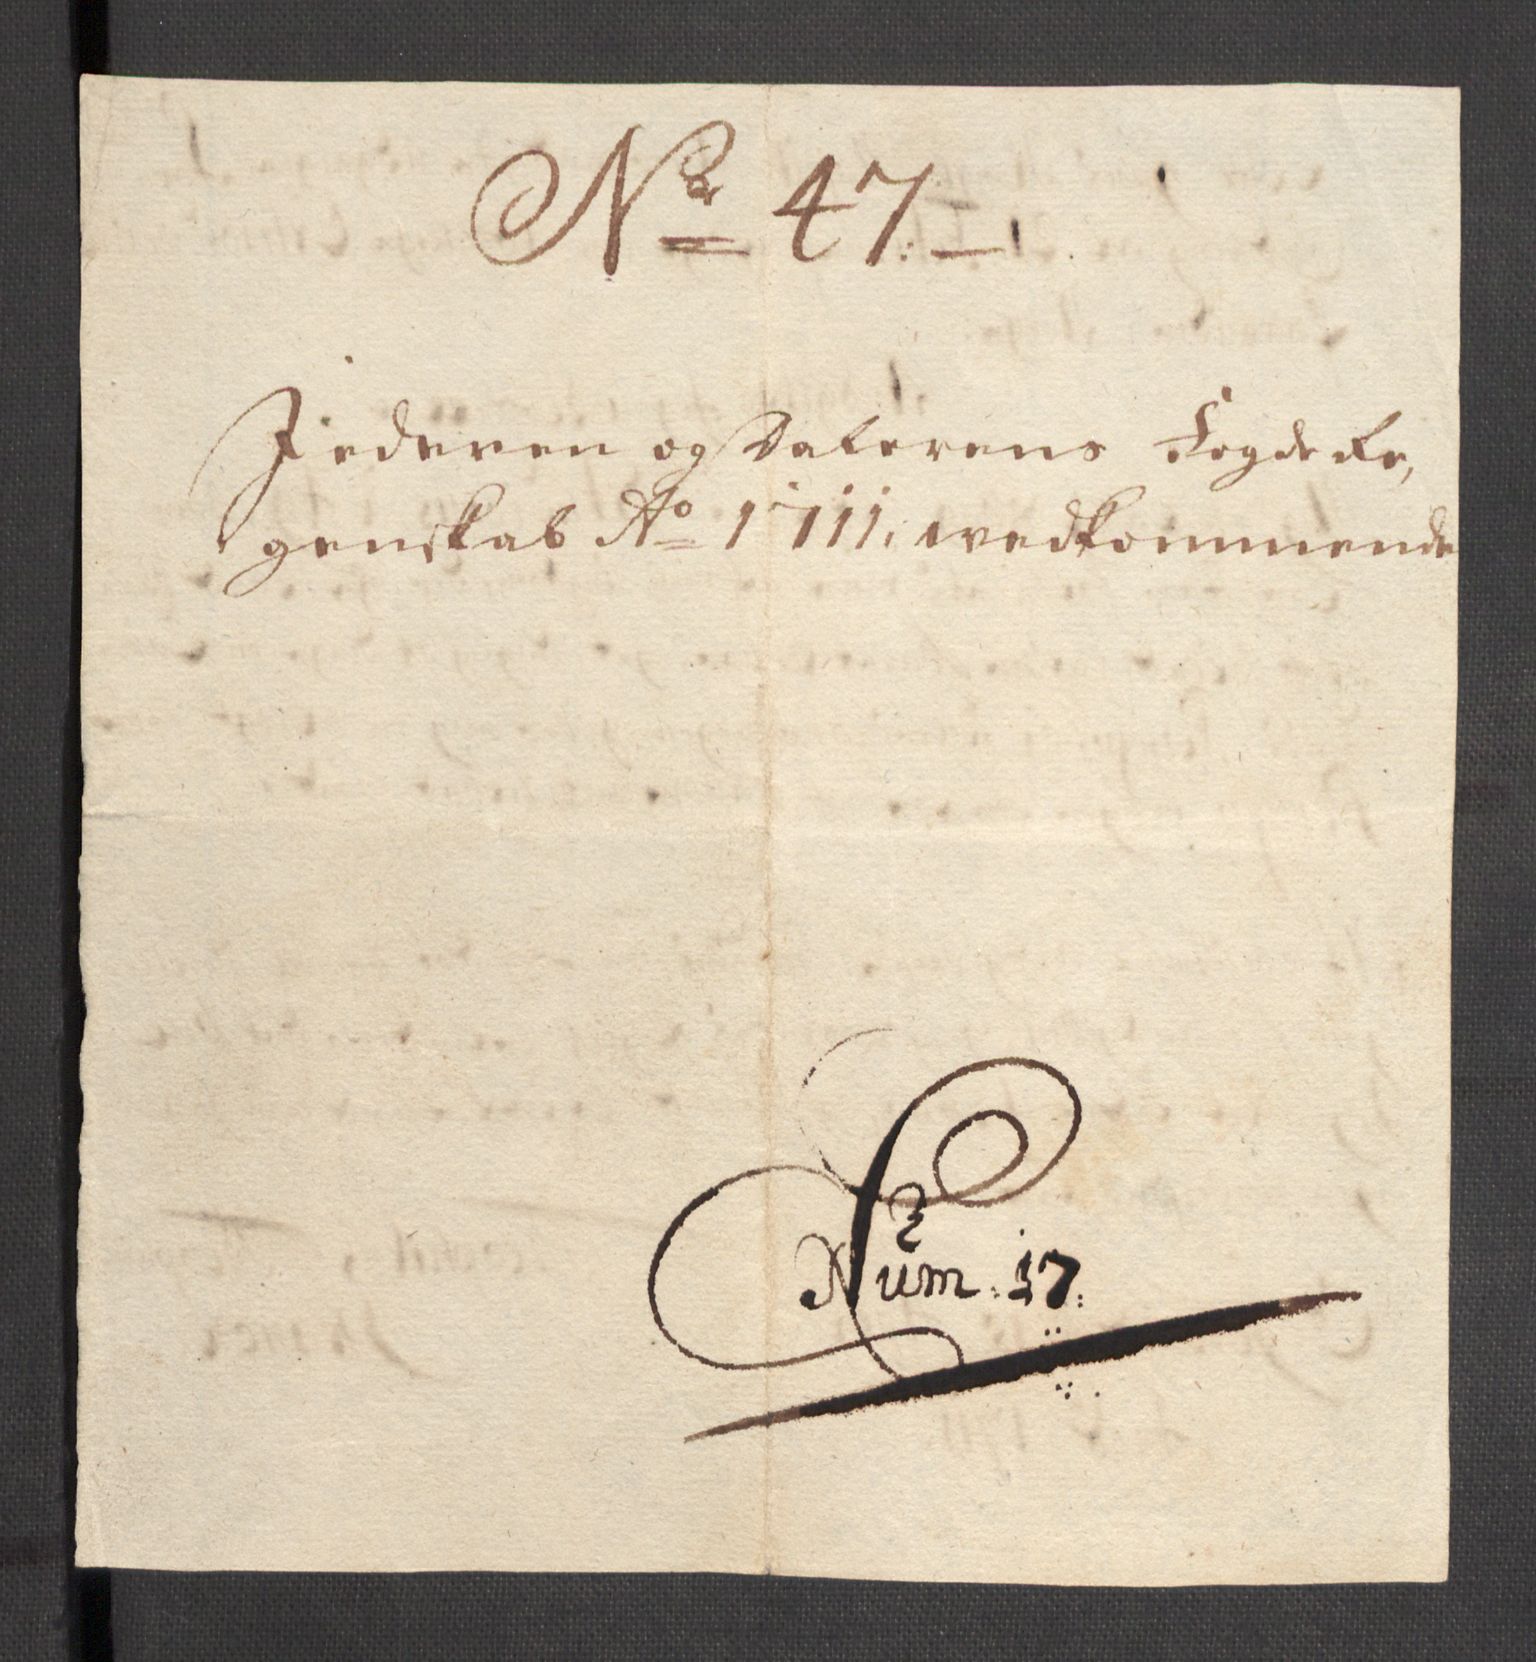 No 47.
Jederen og Dalerens Fogde Re,
genskab Ao 1711. wedkommende
Num. 17.